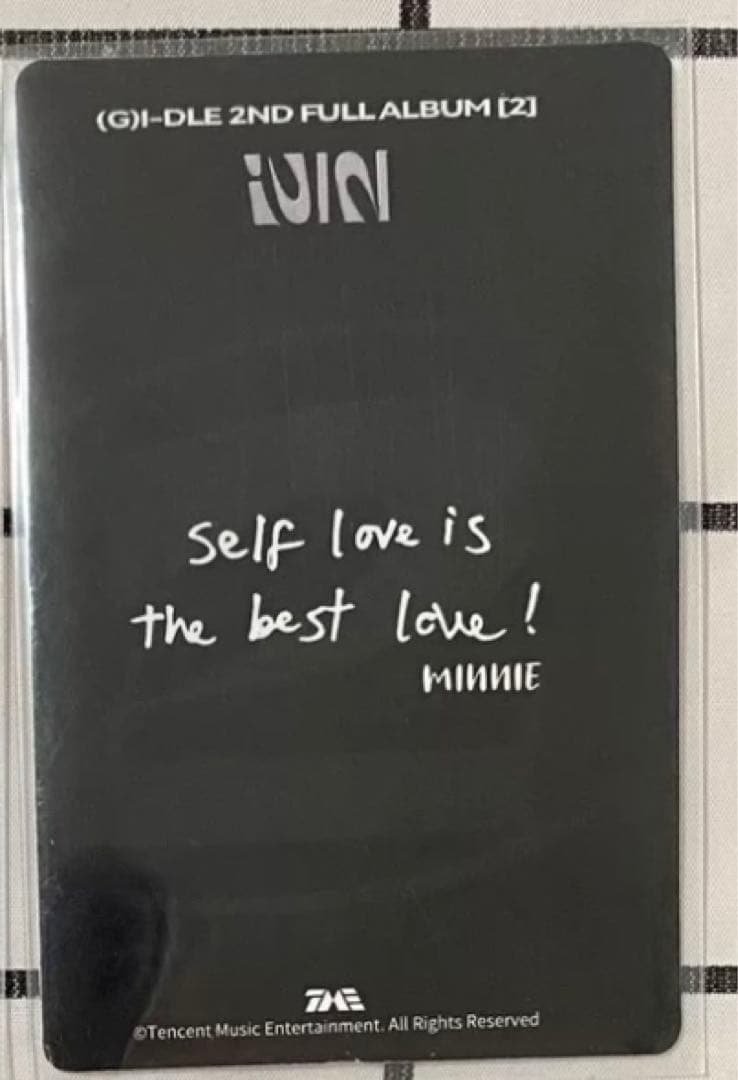 (G)I-DLE 2ND FULL ALBUM [2]
self love is
the best love!
MINNIE
TME
©Tencent Music Entertainment. All Rights Reserved